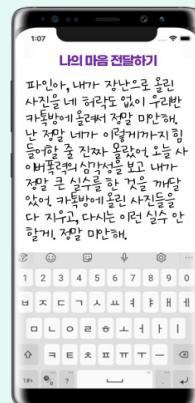 1:07
나의 마음 전달하기
파인아, 내가 장난으로 올린
사진을 네 허락도 없이 우리반
카톡방에 올려서 정말 미안해.
난 정말 네가 이렇게까지 힘
들어할 줄 진짜 몰랐어. 오늘 사
이버폭력의 심각성을 보고 내가
정말 큰 실수를 한 것을 깨달
았어. 카톡방에 올린 사진들을
다 지우고, 다시는 이런 실수 안
할게. 정말 미안해.
1 2 3 4 5 6 7 8 9 0
ㅂ ㅈ ㄷ ㄱ ㅅ ㅛ ㅕ ㅑ ㅐ ㅔ
ㅁ ㄴ ㅇ ㄹ ㅎ ㅗ ㅓ ㅏ ㅣ
ㅋ ㅌ ㅊ ㅍ ㅠ ㅜ ㅡ